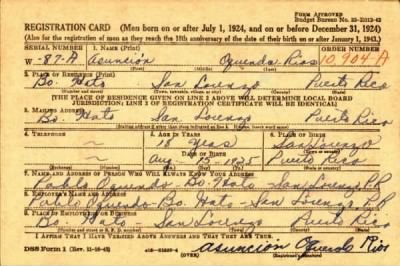 FORM APPROVED
REGISTRATION CARD (Men born on or after July 1, 1924, and on or before December 31, 1924)
(Also for the registration of men as they reach the 18th anniversary of the date of their birth on or after January 1, 1943.)
SERIAL NUMBER 1. NAME (Print) ORDER NUMBER
W-87-A Asunción Oquendo Rios 10,904-A
2. PLACE OF RESIDENCE (Print)
Bo. Hato San Lorenzo Puerto Rico
(Number and street) (Town, township, village, or city) (County) (State)
[THE PLACE OF RESIDENCE GIVEN ON LINE 2 ABOVE WILL DETERMINE LOCAL BOARD
JURISDICTION; LINE 2 OF REGISTRATION CERTIFICATE WILL BE IDENTICAL]
3. MAILING ADDRESS
Bo. Hato San Lorenzo Puerto Rico
4. TELEPHONE 5. AGE IN YEARS 6. PLACE OF BIRTH
18 Years San Lorenzo
DATE OF BIRTH
Aug. 15 - 1925 Puerto Rico
7. NAME AND ADDRESS OF PERSON WHO WILL ALWAYS KNOW YOUR ADDRESS
Pablo Oquendo - Bo. Hato - San Lorenzo, P.R.
8. EMPLOYER'S NAME AND ADDRESS
Pablo Oquendo - Bo. Hato - San Lorenzo, P.R.
9. PLACE OF EMPLOYMENT OR BUSINESS
Bo. Hato San Lorenzo Puerto Rico
I AFFIRM THAT I HAVE VERIFIED ABOVE ANSWERS AND THAT THEY ARE TRUE.
DSS Form 1 (OVER) Asuncion Oquendo Rios
(Registrant's signature)